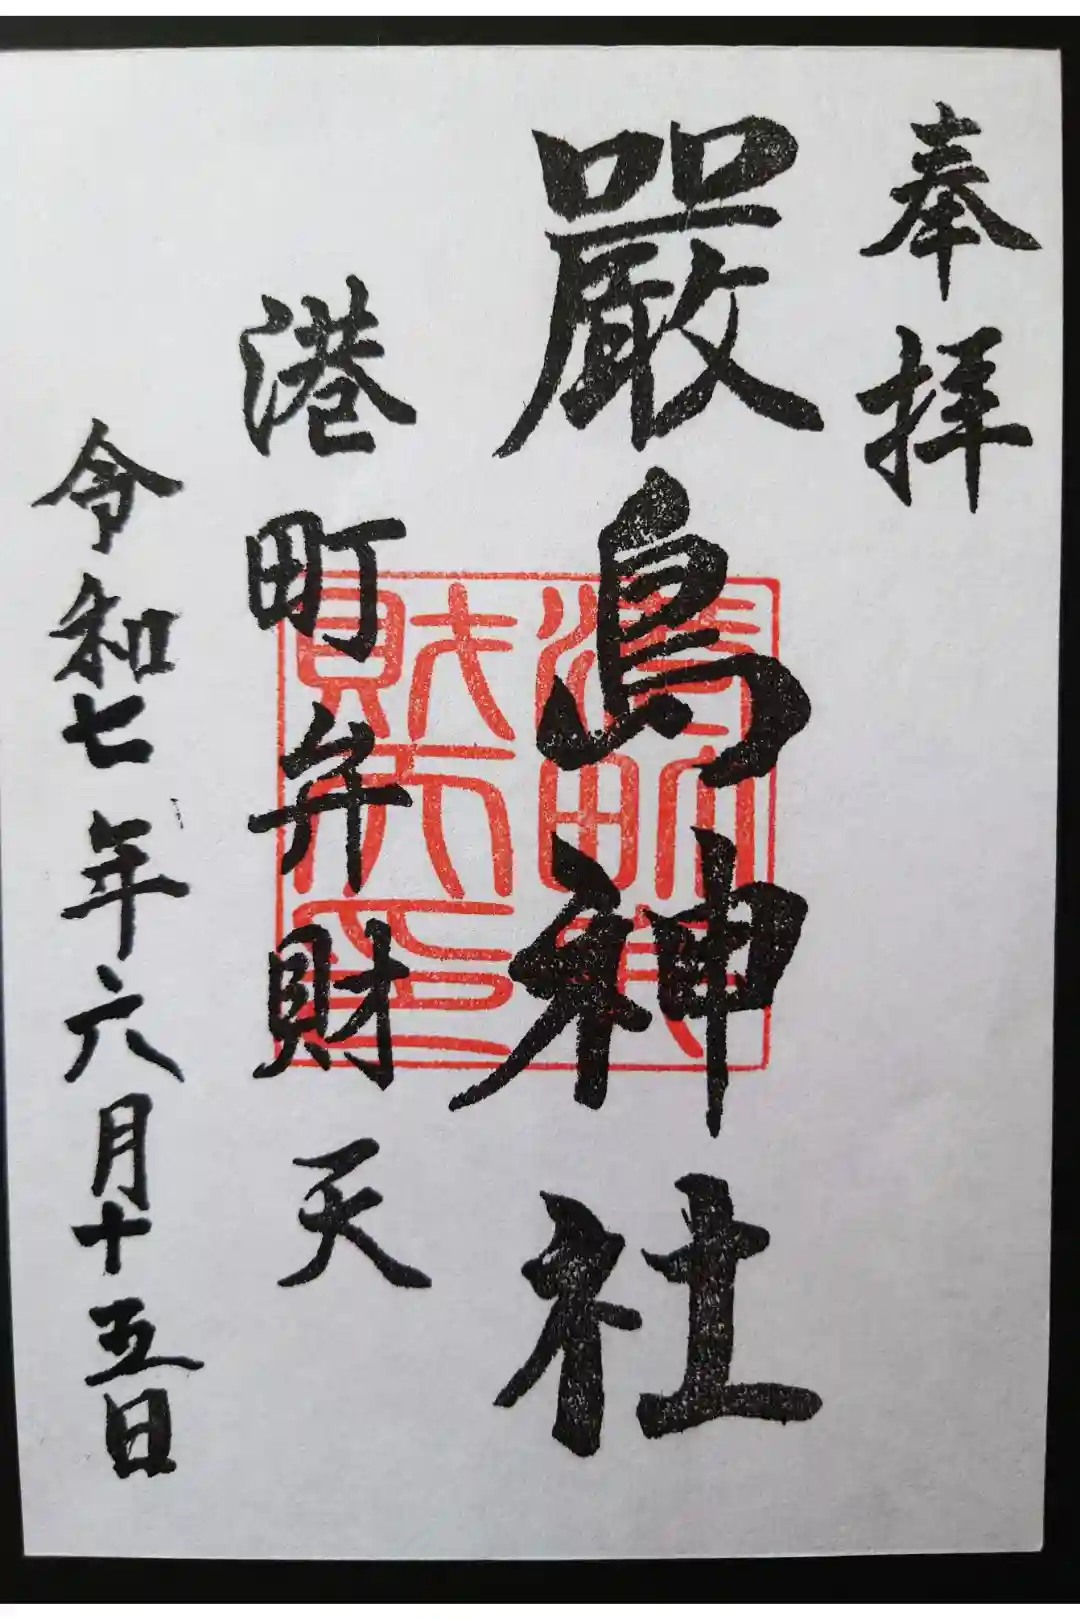 奉拝
嚴島神社
港町弁財天
令和七年六月十五日
港町弁
財天印